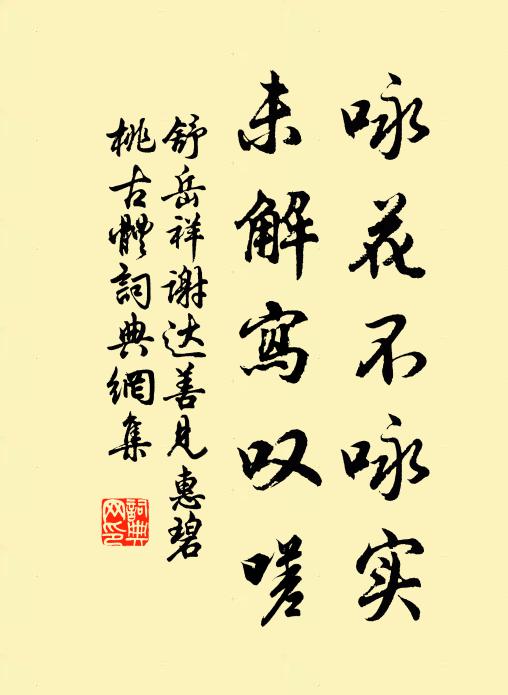 咏花不咏实
未解寫叹嗟
舒岳祥谢达善见惠碧
桃古體詞典網集
詞典网印